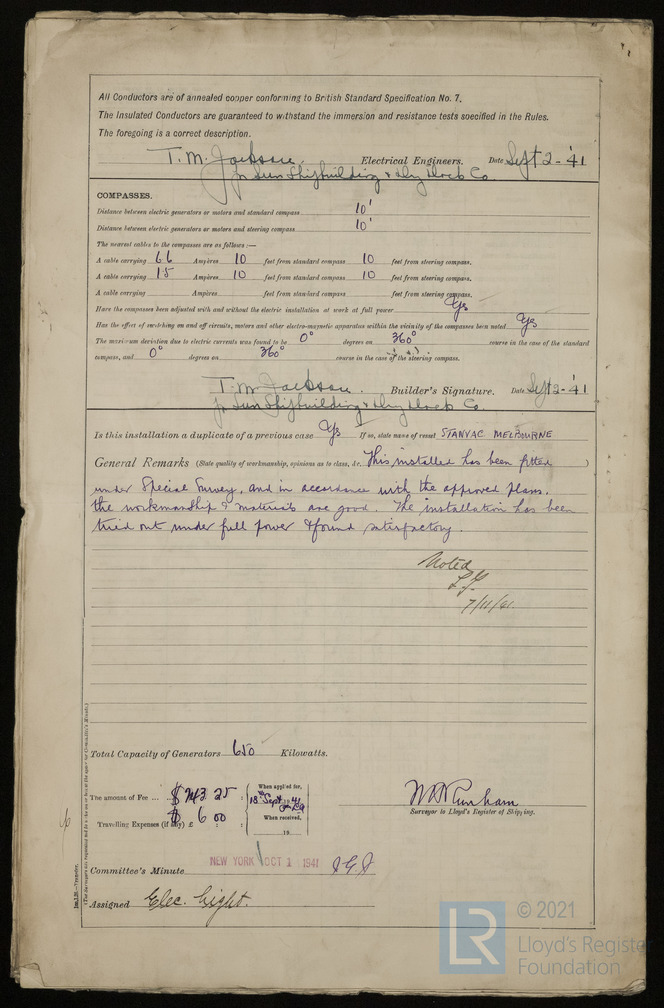 All Conductors are of annealed copper conforming to British Standard Specification No. 7.
The Insulated Conductors are guaranteed to withstand the immersion and resistance tests specified in the Rules.
The foregoing is a correct description.
T. M. Jackson. Electrical Engineers. Date Sept 2 - '41
for Sun Shipbuilding & Dry Dock Co.
COMPASSES.
Distance between electric generators or motors and standard compass 10'
Distance between electric generators or motors and steering compass 10'
The nearest cables to the compasses are as follows :—
A cable carrying 66 Ampères 10 feet from standard compass 10 feet from steering compass.
A cable carrying 15 Ampères 10 feet from standard compass 10 feet from steering compass.
A cable carrying Ampères feet from standard compass feet from steering compass.
Have the compasses been adjusted with and without the electric installation at work at full power Yes
Has the effect of switching on and off circuits, motors and other electro-magnetic apparatus within the vicinity of the compasses been noted Yes
The maximum deviation due to electric currents was found to be 0° degrees on 360° course in the case of the standard
compass, and 0° degrees on 360° course in the case of the steering compass.
T. M. Jackson. Builder's Signature. Date Sept 2 - '41
for Sun Shipbuilding & Dry Dock Co.
Is this installation a duplicate of a previous case Yes If so, state name of vessel STANVAC MELBOURNE
General Remarks (State quality of workmanship, opinions as to class, &c. This installed has been fitted )
under Special Survey, and in accordance with the approved plans,
the workmanship & materials are good. The installation has been
tried out under full power & found satisfactory.
Noted
7/11/41.
Total Capacity of Generators 650 Kilowatts.
The amount of Fee ... $ 243 25 : When applied for,
18th Sept 1941
Travelling Expenses (if any) £ $ 6 00 : When received,
19
Surveyor to Lloyd's Register of Shipping.
Committee's Minute NEW YORK OCT 1 1941
Assigned Elec. Light.
LR © 2021
Lloyd's Register
Foundation